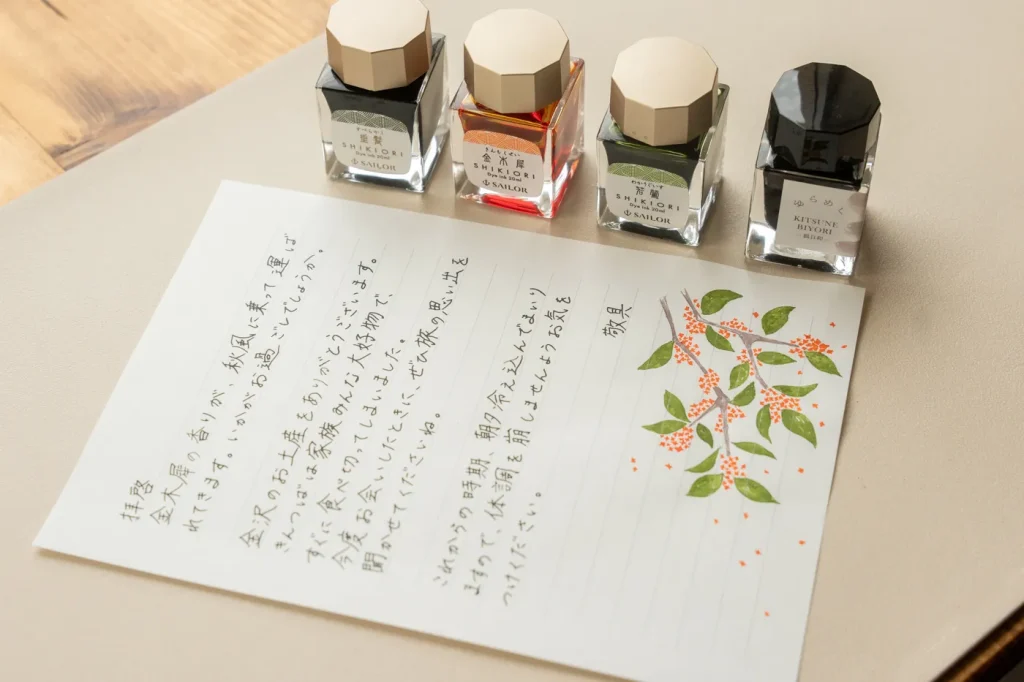 SHIKIORI
Dye ink 20ml
SAILOR
きんもくせい
金木犀
SHIKIORI
Dye ink 20ml
SAILOR
わかうぐいす
若鶯
SHIKIORI
Dye ink 20ml
SAILOR
ゆらめく
KITSUNE
BIYORI
狐日和
拝啓
金木犀の香りが、秋風に乗って運ば
れてきます。いかがお過ごしでしょうか。
金沢のお土産をありがとうございます。
きんつばは家族みんな大好物で、
すぐに食べ切ってしまいました。
今度お会いしたときに、ぜひ旅の思い出を
聞かせてくださいね。
これからの時期、朝夕冷え込んでまいり
ますので、体調を崩しませんようお気を
つけください。
敬具